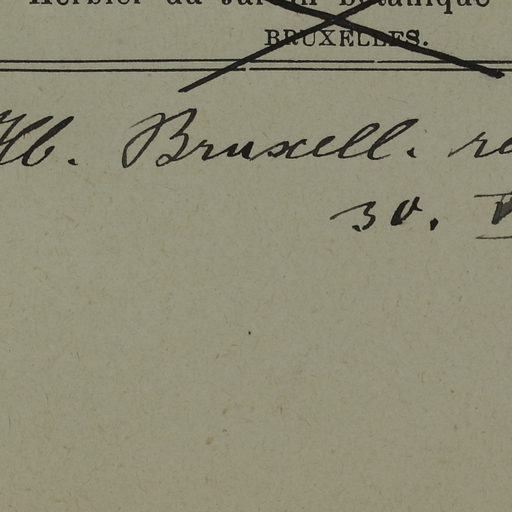 Herbier du Jardin botanique
BRUXELLES.
Hb. Bruxell. re
30. V